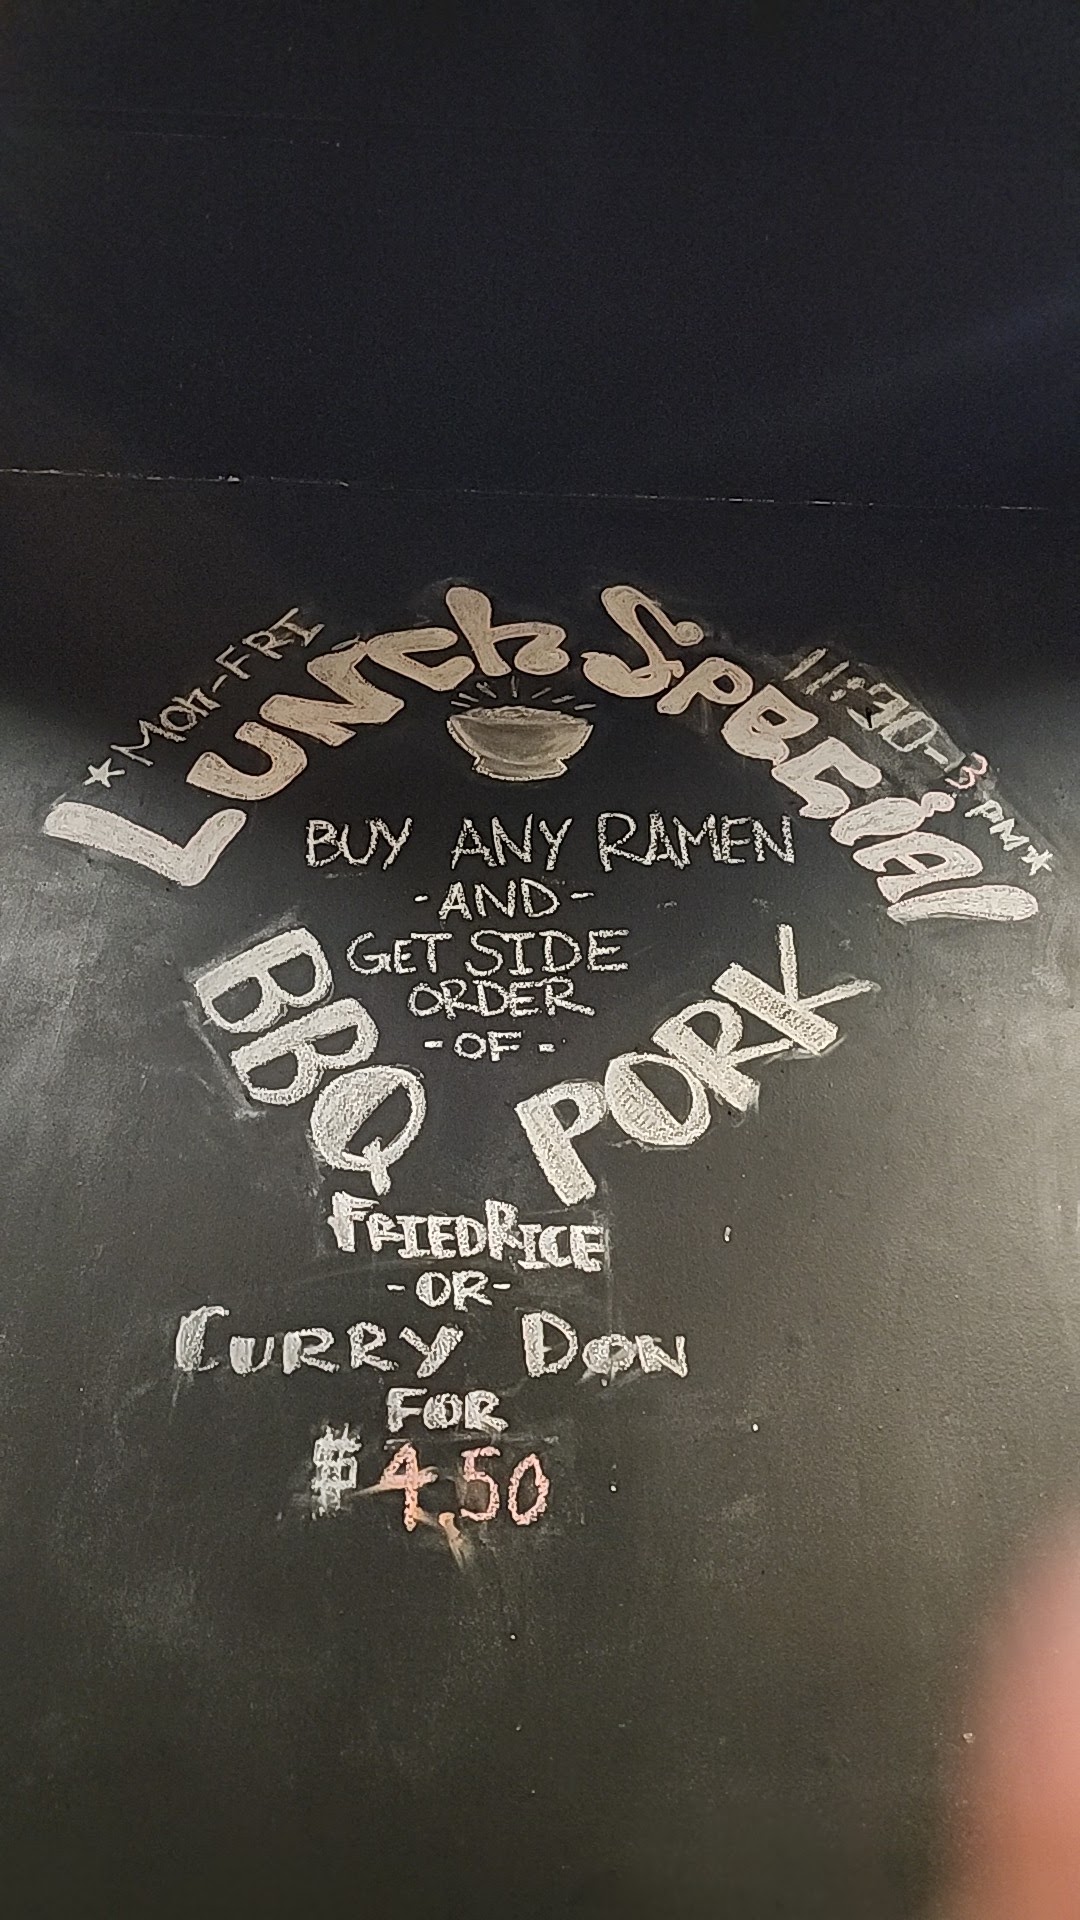 *MON-FRI
Lunch Special
11:30-3 PM*
BUY ANY RAMEN
-AND-
GET SIDE
ORDER
-OF-
BBQ PORK
FRIEDRICE
-OR-
CURRY DON
FOR
$4.50